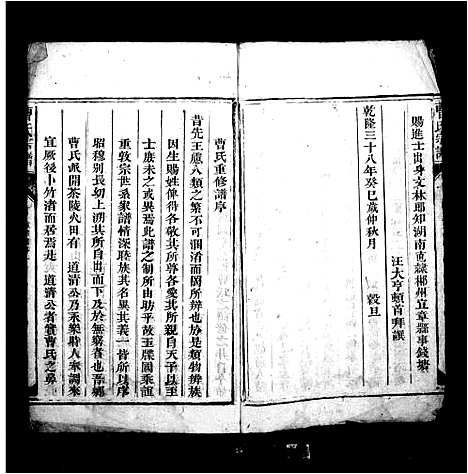 賜進士出身文林郎知湖南直隸郴州宜章縣事錢塘
汪大亨頓首拜譔
乾隆三十八年癸巳歲仲秋月
穀旦
曹氏宗譜
曹氏重修譜序
昔先王慮人類之繁不可溷淆而罔所辨也於是類物辨族
因生賜姓俾得各敬其所尊各愛其所親自天子以至
士庶未之或異焉此譜之制所由助乎故玉牒國乘誼
重敦宗世系家譜情深聯族其名異其義一皆所以序
昭穆別長幼上溯其所自出而下及於無窮者也吾鄉
曹氏派開茶陵火田有 道清公乃永樂時人來調來
宜厥後卜竹渚而居焉是 道清公者實曹氏之鼻
曹氏宗譜